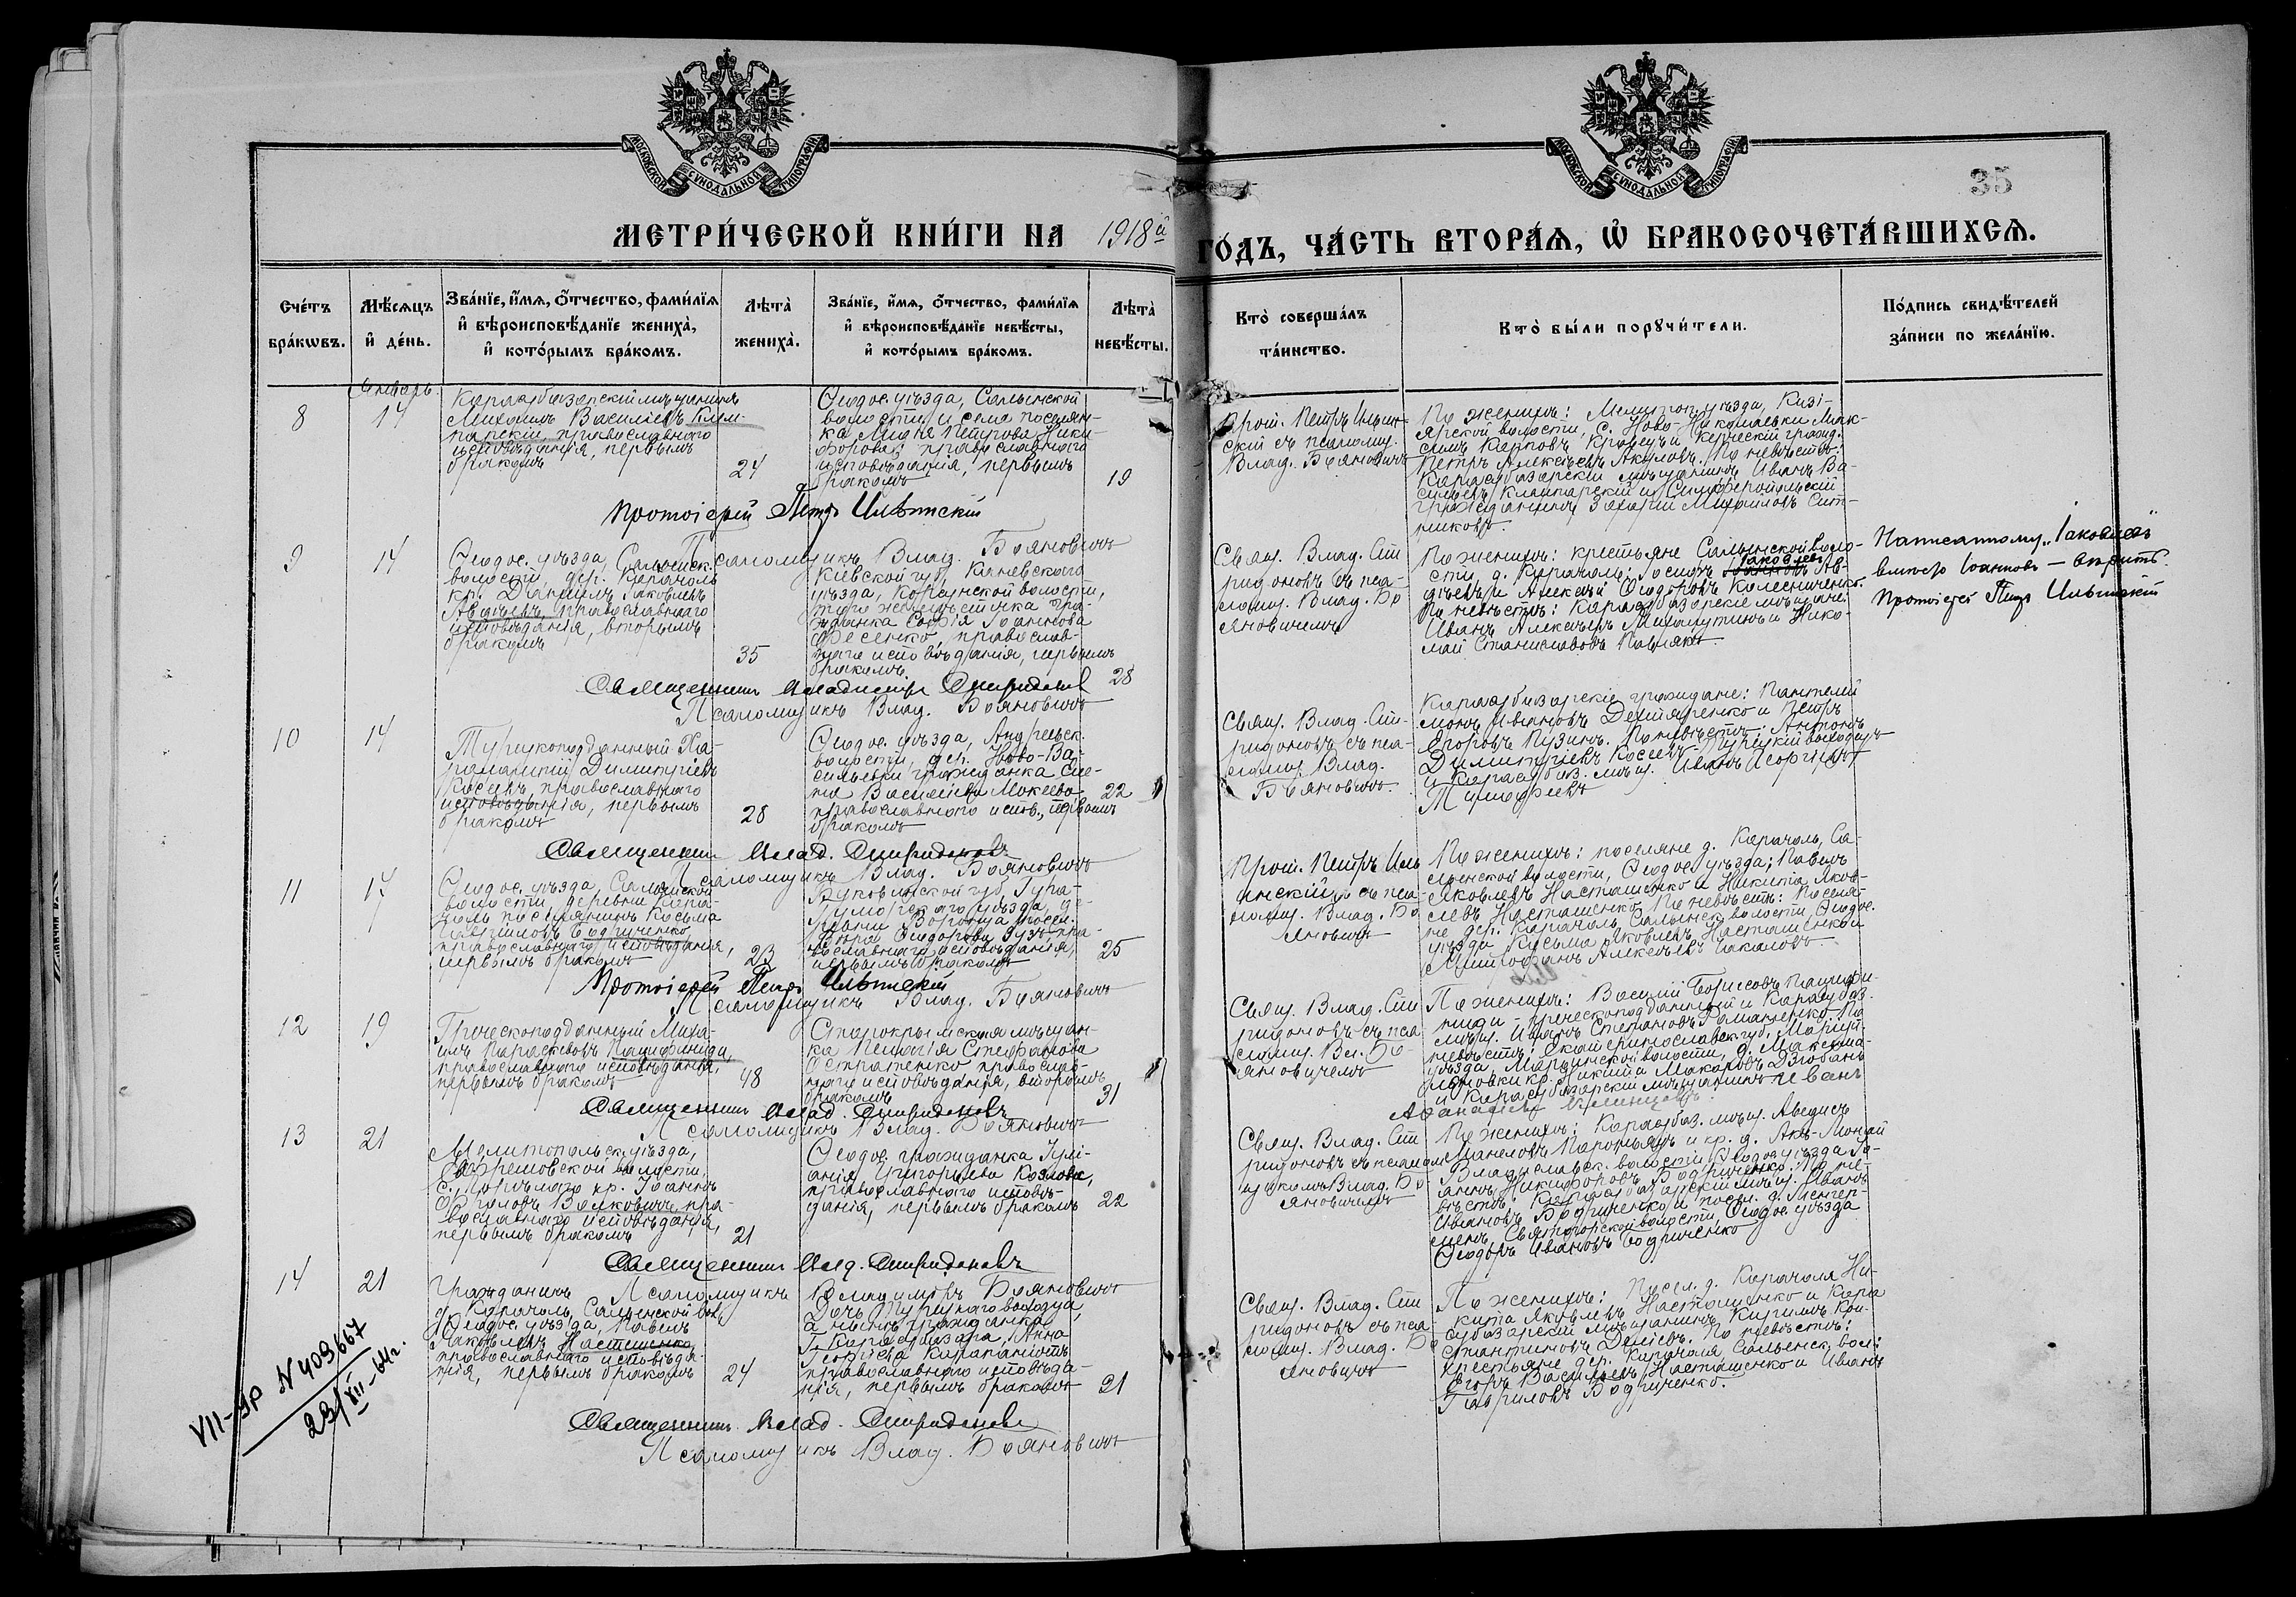 МОСКОВСКОЙ СѴНОДАЛЬНОЙ ТИПОГРАФІИ
МОСКОВСКОЙ СѴНОДАЛЬНОЙ ТИПОГРАФІИ
35
МЕТРИ́ЧЕСКОЙ КНИ́ГИ НА 1918й ГО́ДЪ, ЧА́СТЬ ВТОРА́Ѧ, Ѡ҆ БРАКОСОЧЕТА́ВШИХСѦ.
Сче́тъ
бра́кѡвъ.
Мѣ́сѧцъ
и҆ де́нь.
Зва́нїе, и҆́мѧ, ѻ҆́тчество, фами́лїѧ
и҆ вѣроисповѣ́данїе жениха̀,
и҆ кото́рымъ бра́комъ.
Лѣта̀
жениха̀.
Зва́нїе, и҆́мѧ, ѻ҆́тчество, фами́лїѧ
и҆ вѣроисповѣ́данїе невѣ́сты,
и҆ кото́рымъ бра́комъ.
Лѣта̀
невѣ́сты.
Кто̀ соверша́лъ
та́инство.
Кто̀ бы́ли порꙋчи́тели.
По́дпись свидѣ́телей
за́писи по жела́нїю.
Январь.
8
14
Карасубазарскій мѣщанинъ
Михаилъ Василіевъ
православнаго
исповѣданія, первымъ
бракомъ
24
Ѳеодос. уѣзда, Салынской
волости и села поселян-
ка Марія Петрова Ники-
форова, православнаго
исповѣданія, первымъ
бракомъ
19
Прот. Петръ Ильин-
скій съ псаломщ.
Влад. Бояновичъ
По женихѣ: Мелитоп. уѣзда, Кизі-
ярской волости, с. Ново-Николаевки Мак-
симъ Карповъ Кравецъ и Керческій гражд.
Петръ Алексѣевъ Акуловъ. По невѣстѣ:
Карасубазарскій мѣщанинъ Иванъ Ва-
сильевъ и Симферопольскій
гражданинъ Захарій Михайловъ Сит-
никовъ.
Протоіерей Петръ Ильинскій
Псаломщикъ Влад. Бояновичъ
9
14
Ѳеодос. уѣзда, Салынск.
волости, дер. Карачоль
кр. Даніилъ Яковлевъ
Авдѣевъ, православнаго
исповѣданія, вторымъ
бракомъ
35
Кіевской губ, Каневскаго
уѣзда, Корсунской волости,
гра-
жданка Софія Іоаннова
Фесенко, православ-
наго исповѣданія, первымъ
бракомъ.
28
Свящ. Влад. Спи-
ридоновъ съ пса-
ломщ. Влад. Бо-
яновичемъ
По женихѣ: крестьяне Салынской воло-
сти, д. Карачоль: Іосифъ Іоанновъ Яковлевъ Ав-
дѣевъ и Алексѣй Ѳеодотовъ Колесниченко.
По невѣстѣ: Карасубазарскіе мѣщане:
Иванъ Алексѣевъ и Нико-
лай Станиславовъ Павлякъ.
Написанному „Іаковлевъ"
вмѣсто Іоанновъ — вѣрить.
Протоіерей Петръ Ильинскій
Священникъ Владиміръ Спиридоновъ
Псаломщикъ Влад. Бояновичъ
10
14
Турецкоподданный Ха-
раламній Димитріевъ
Косевъ, православнаго
исповѣданія, первымъ
бракомъ
28
Ѳеодос. уѣзда, Андреевск.
волости, дер. Ново-Ва-
сильевки гражданка Еле-
на Василіева Мокеева,
православнаго испов., первымъ
бракомъ
22
Свящ. Влад. Спи-
ридоновъ съ пса-
ломщ. Влад.
Бояновичъ.
Карасубазарскіе граждане: Пантелей
монъ Ивановъ Дегтяренко и Петръ
Егоровъ Пузинъ. По невѣстѣ: Антонъ
Димитріевъ Косевъ - Турецкій выходецъ
и Карасубаз. мѣщ. Иванъ Георгіевъ
Тимофеевъ
Священникъ Влад. Спиридоновъ
Псаломщикъ Влад. Бояновичъ
11
17
Ѳеодос. уѣзда, Салынской
волости деревни Кара-
чоль поселянинъ Косьма
Гавриловъ Бодриченко,
православнаго исповѣданія,
первымъ бракомъ
23
Буковинской губ, Гура-
Гуморскаго уѣзда, де-
ревни посел.
Ѳеодорова пра-
вославнаго исповѣданія,
первымъ бракомъ
25
Прот. Петръ Иль
инскій съ пса-
ломщ. Влад. Бо
яновичъ
По женихѣ: поселяне д. Карачоль, Са-
лынской волости, Ѳеодос. уѣзда; Павелъ
Яковлевъ Насташенко и Никита Яков-
левъ Насташенко. По невѣстѣ: Поселя-
не дер. Карачоль, Салынск. волости, Ѳеодос.
уѣзда Косьма Яковлевъ Насташенко и
Митрофанъ Алексѣевъ Чакаловъ
Протоіерей Петръ Ильинскій
Псаломщикъ Влад. Бояновичъ
12
19
Греческоподданный Миха-
илъ Параскевовъ Пацифиниди,
православнаго исповѣданія,
первымъ бракомъ
48
Старокрымская мѣщан-
ка Пелагія Стефанова
Остратенко православ-
наго исповѣданія, вторымъ
бракомъ
31
Свящ. Влад. Спи
ридоновъ съ пса
ломщ. Вл. Бо-
яновичемъ
По женихѣ: Василій Борисовъ Пацифи-
ниди - греческоподданный и Карасубаз.
мѣщ. Иванъ Степановъ Романенко. По
невѣстѣ: Екатеринославск. губ, Маріуп.
уѣзда, Марьинской волости, д. Максими-
ляновки кр. Никита Макаровъ Дзюбанъ
и Карасубазарскій мѣщанинъ Иванъ
Аѳанасіевъ
Священникъ Влад. Спиридоновъ
Псаломщикъ Влад. Бояновичъ
13
21
Мелитопольск. уѣзда,
Ефремовской волости,
с. Горѣлаго кр. Іоаннъ
Фроловъ Волковичъ пра-
вославнаго исповѣданія,
первымъ бракомъ
21
Ѳеодос. гражданка Іулі-
анія Григорьева Козлова,
православнаго исповѣ-
данія, первымъ бракомъ
22
Свящ. Влад. Спи
ридоновъ съ псалом
щикомъ Влад. Бо
яновичъ
По женихѣ: Карасубаз. мѣщ. Аведисъ
Манеловъ и кр. д. Акъ-Монай
Владиславск. волости, Ѳеодос. уѣзда Іо-
аннъ Никифоровъ Бодриченко. По не-
вѣстѣ: Карасубазарскій мѣщ. Иванъ
Ивановъ Бодриченко и посел. д. Менгер-
менъ, волости, Ѳеодос. уѣзда
Ѳеодоръ Ивановъ Бодриченко
Священникъ Влад. Спиридоновъ
Псаломщикъ Владиміръ Бояновичъ
14
21
Гражданинъ
д. Карачоль, Салынской вол,
Ѳеодос. уѣзда, Павелъ
Яковлевъ Насташенко,
православнаго исповѣда-
нія, первымъ бракомъ
24
Дочь Турецкаго выходца,
а нынѣ гражданка
г. Карасубазара, Анна
Георгіева
православнаго исповѣда-
нія, первымъ бракомъ
21
Свящ. Влад. Спи
ридоновъ съ пса-
ломщ. Влад. Бо
яновичъ
По женихѣ: Посел. д. Карачоля Ни-
кита Яковлевъ Насташенко и Кара
субазарскій мѣщанинъ Кирилъ Кон-
стантиновъ Деліевъ. По невѣстѣ:
крестьяне дер. Карачоля, Салынск. вол:
Егоръ Васильевъ Насташенко и Иванъ
Гавриловъ Бодриченко.
Священникъ Влад. Спиридоновъ
Псаломщикъ Влад. Бояновичъ
VII-ЯР N 409667
29/XII-64г.